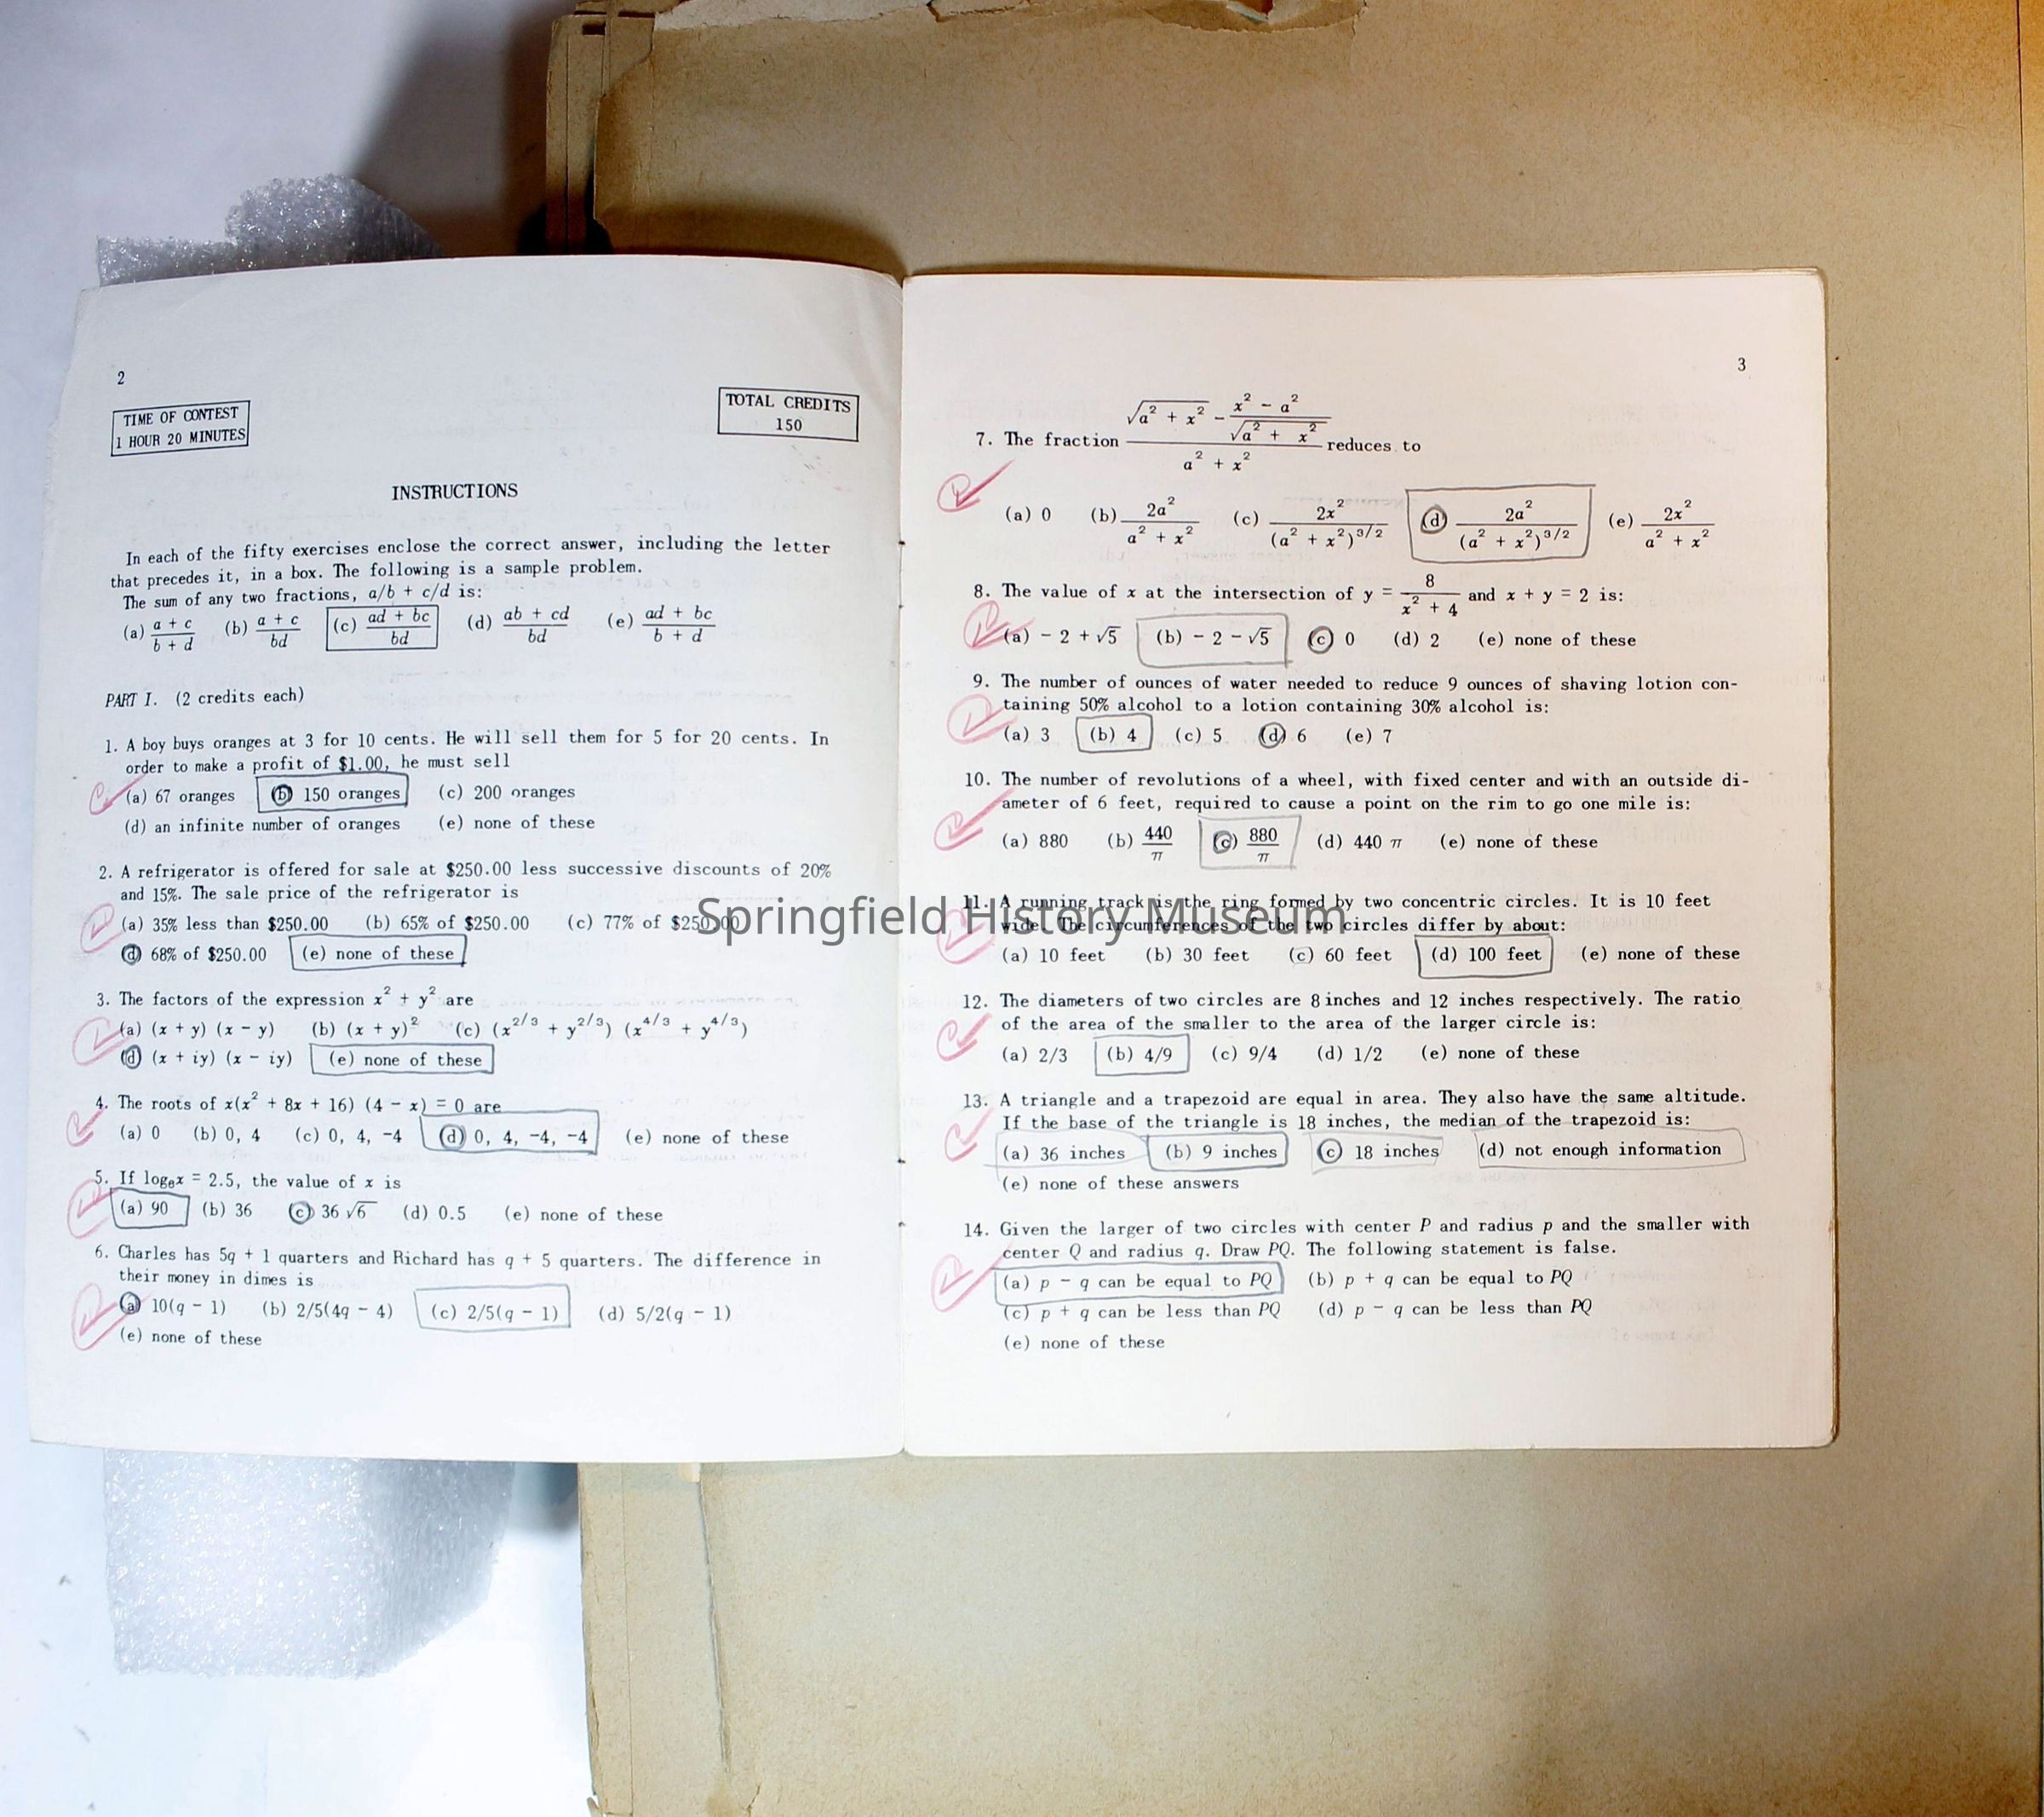 2
TIME OF CONTEST
1 HOUR 20 MINUTES
TOTAL CREDITS
150
INSTRUCTIONS
In each of the fifty exercises enclose the correct answer, including the letter
that precedes it, in a box. The following is a sample problem.
The sum of any two fractions, a/b + c/d is:
(a) (a + c)/(b + d) (b) (a + c)/bd (c) (ad + bc)/bd (d) (ab + cd)/bd (e) (ad + bc)/(b + d)
PART I. (2 credits each)
1. A boy buys oranges at 3 for 10 cents. He will sell them for 5 for 20 cents. In
order to make a profit of $1.00, he must sell
(a) 67 oranges (b) 150 oranges (c) 200 oranges
(d) an infinite number of oranges (e) none of these
2. A refrigerator is offered for sale at $250.00 less successive discounts of 20%
and 15%. The sale price of the refrigerator is
(a) 35% less than $250.00 (b) 65% of $250.00 (c) 77% of $250.00
(d) 68% of $250.00 (e) none of these
3. The factors of the expression x² + y² are
(a) (x + y) (x − y) (b) (x + y)² (c) (x^2/3 + y^2/3) (x^4/3 + y^4/3)
(d) (x + iy) (x − iy) (e) none of these
4. The roots of x(x² + 8x + 16) (4 − x) = 0 are
(a) 0 (b) 0, 4 (c) 0, 4, −4 (d) 0, 4, −4, −4 (e) none of these
5. If log₆x = 2.5, the value of x is
(a) 90 (b) 36 (c) 36 √6 (d) 0.5 (e) none of these
6. Charles has 5q + 1 quarters and Richard has q + 5 quarters. The difference in
their money in dimes is
(a) 10(q − 1) (b) 2/5(4q − 4) (c) 2/5(q − 1) (d) 5/2(q − 1)
(e) none of these
3
7. The fraction (√(a² + x²) − (x² − a²)/√(a² + x²))/(a² + x²) reduces to
(a) 0 (b) 2a²/(a² + x²) (c) 2x²/(a² + x²)^3/2 (d) 2a²/(a² + x²)^3/2 (e) 2x²/(a² + x²)
8. The value of x at the intersection of y = 8/(x² + 4) and x + y = 2 is:
(a) − 2 + √5 (b) − 2 − √5 (c) 0 (d) 2 (e) none of these
9. The number of ounces of water needed to reduce 9 ounces of shaving lotion con-
taining 50% alcohol to a lotion containing 30% alcohol is:
(a) 3 (b) 4 (c) 5 (d) 6 (e) 7
10. The number of revolutions of a wheel, with fixed center and with an outside di-
ameter of 6 feet, required to cause a point on the rim to go one mile is:
(a) 880 (b) 440/π (c) 880/π (d) 440 π (e) none of these
11. A running track is the ring formed by two concentric circles. It is 10 feet
wide. The circumferences of the two circles differ by about:
(a) 10 feet (b) 30 feet (c) 60 feet (d) 100 feet (e) none of these
12. The diameters of two circles are 8 inches and 12 inches respectively. The ratio
of the area of the smaller to the area of the larger circle is:
(a) 2/3 (b) 4/9 (c) 9/4 (d) 1/2 (e) none of these
13. A triangle and a trapezoid are equal in area. They also have the same altitude.
If the base of the triangle is 18 inches, the median of the trapezoid is:
(a) 36 inches (b) 9 inches (c) 18 inches (d) not enough information
(e) none of these answers
14. Given the larger of two circles with center P and radius p and the smaller with
center Q and radius q. Draw PQ. The following statement is false.
(a) p − q can be equal to PQ (b) p + q can be equal to PQ
(c) p + q can be less than PQ (d) p − q can be less than PQ
(e) none of these
Springfield History Museum